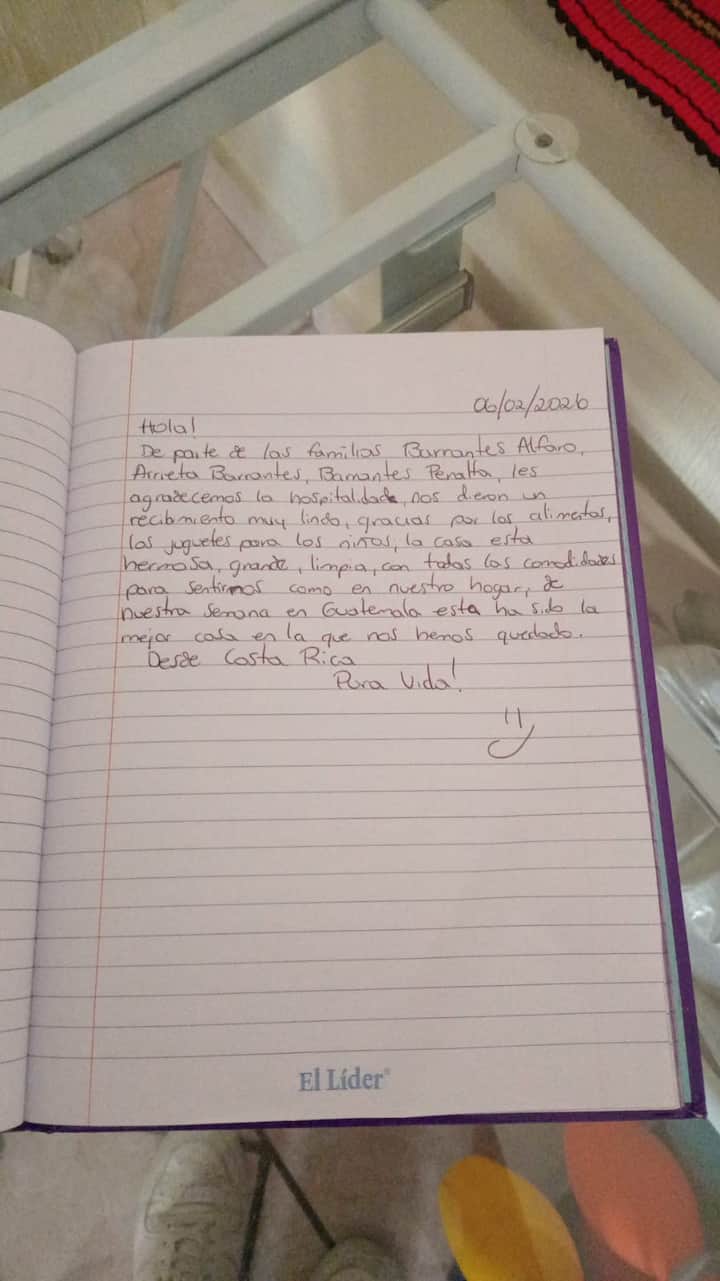 06/02/2026
Hola!
De parte de las familias Barrantes Alfaro,
Arrieta Barrantes, Barrantes Peralta, les
agradecemos la hospitalidad, nos dieron un
recibimiento muy lindo, gracias por los alimentos,
los juguetes para los niños, la casa esta
hermosa, grande, limpia, con todas las comodidades
para sentirnos como en nuestro hogar, de
nuestra semana en Guatemala esta ha sido la
mejor casa en la que nos hemos quedado.
Desde Costa Rica
Pura Vida!
El Líder®